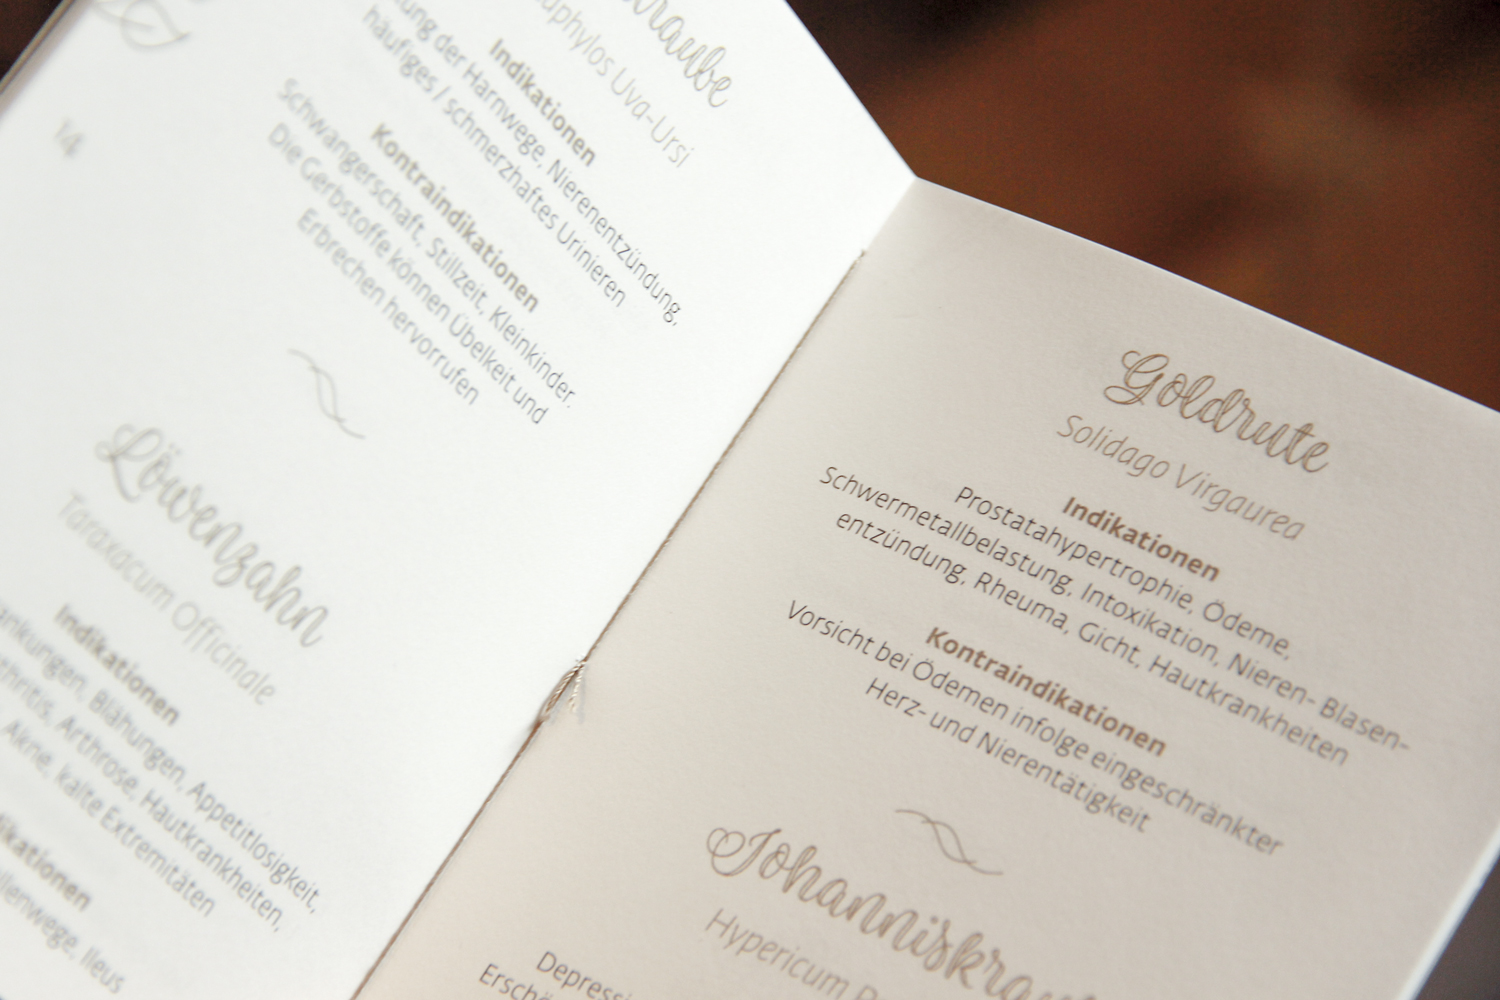 Uva-Ursi
Indikationen
der Harnwege, Nierenentzündung,
häufiges / schmerzhaftes Urinieren
Kontraindikationen
Schwangerschaft, Stillzeit, Kleinkinder.
Die Gerbstoffe können Übelkeit und
Erbrechen hervorrufen
Löwenzahn
Taraxacum Officinale
Indikationen
Blähungen, Appetitlosigkeit,
Arthrose, Hautkrankheiten,
Akne, kalte Extremitäten
Ileus
14
Goldrute
Solidago Virgaurea
Indikationen
Prostatahypertrophie, Ödeme,
Schwermetallbelastung, Intoxikation, Nieren- Blasen-
entzündung, Rheuma, Gicht, Hautkrankheiten
Kontraindikationen
Vorsicht bei Ödemen infolge eingeschränkter
Herz- und Nierentätigkeit
Johanniskrau
Hypericum